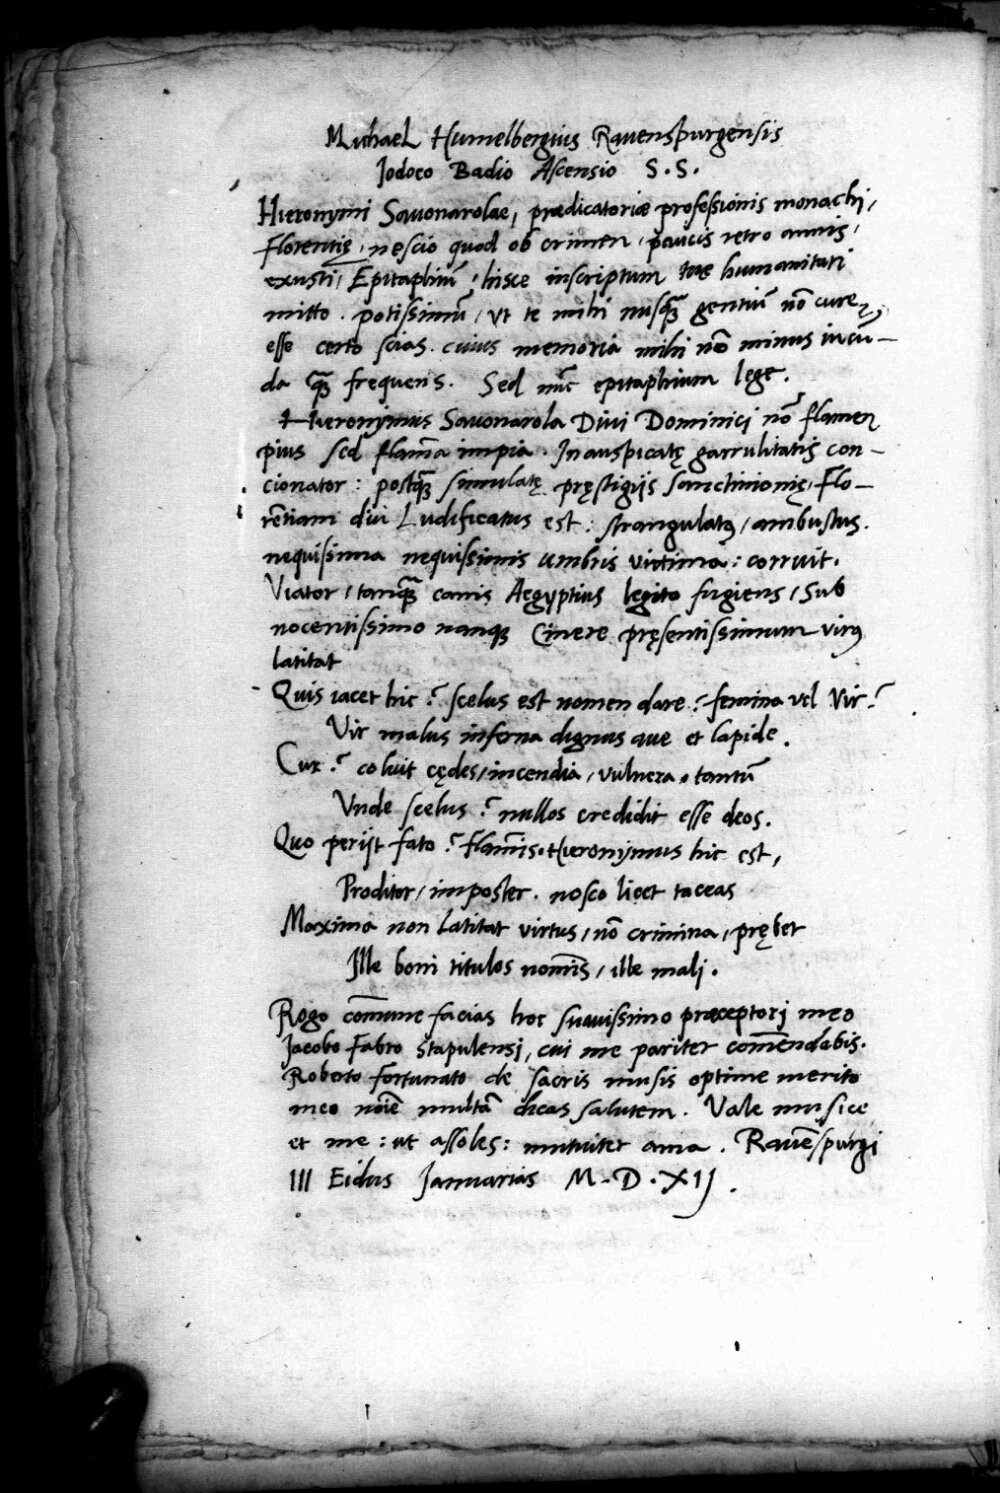 Michael Humelbergius Ravenspurgensis
Jodoco Badio Ascensio S. S.
Hieronymi Savonarolae, prædicatoriæ professionis monachi,
Florentię, nescio quod ob crimen, paucis retro annis,
exusti, Epitaphiū, hisce inscriptum tuę humanitati
mitto. potissimū, vt te mihi nusq̃ gentiū nō curę,
esse certo scias. cuius memoria mihi nō minus iucū-
da q̃ frequens. Sed nūc epitaphium lege.
Hieronymus Savonarola Divi Dominici nō flamen
pius sed flam̄a impia. Inauspicatę garrulitatis con-
cionator: postq̃ simulatę pręstigijs sanctimonię, Flo-
rētiam diu Ludificatus est: strangulatꝰ, ambustus.
nequissima nequissimis umbris victima: corruit.
Viator, tanq̃ canis Aegyptius legito fugiens, Sub
nocentissimo nanqꝫ Cinere pręsentissimum virꝰ
latitat
Quis iacet hic? scelus est nomen dare? femina vel Vir?
Vir malus inferna dignus aue et lapide.
Cur? coluit cędes, incendia, vulnera, tantū
Vnde scelus? nullos credidit esse deos.
Quo perijt fato? flam̄is. Hieronymus hic est,
Proditor, imposter. nosco licet taceas
Maxima non latitat virtus, nō crimina, prębet
Ille boni titulos nom̄is, ille mali.
Rogo com̄une facias hoc suauissimo præceptori meo
Jacobo Fabro Stapulensi, cui me pariter com̄endabis.
Roberto fortunato de sacris musis optime merito
meo noīe multā dicas salutem. Vale musice
et me: ut assoles: mutuiter ama. Ravēspurgi
III Eidus Januarias M. D. XIJ.